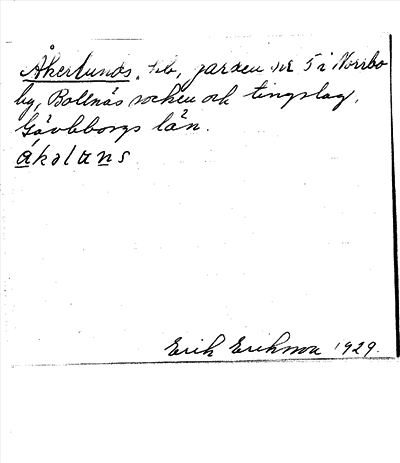 Åkerlunds, hb, gården nr 5 i Norrbo
by, Bollnäs socken och tingslag,
Gävleborgs län.
åkəlans
Erik Erikson 1929.